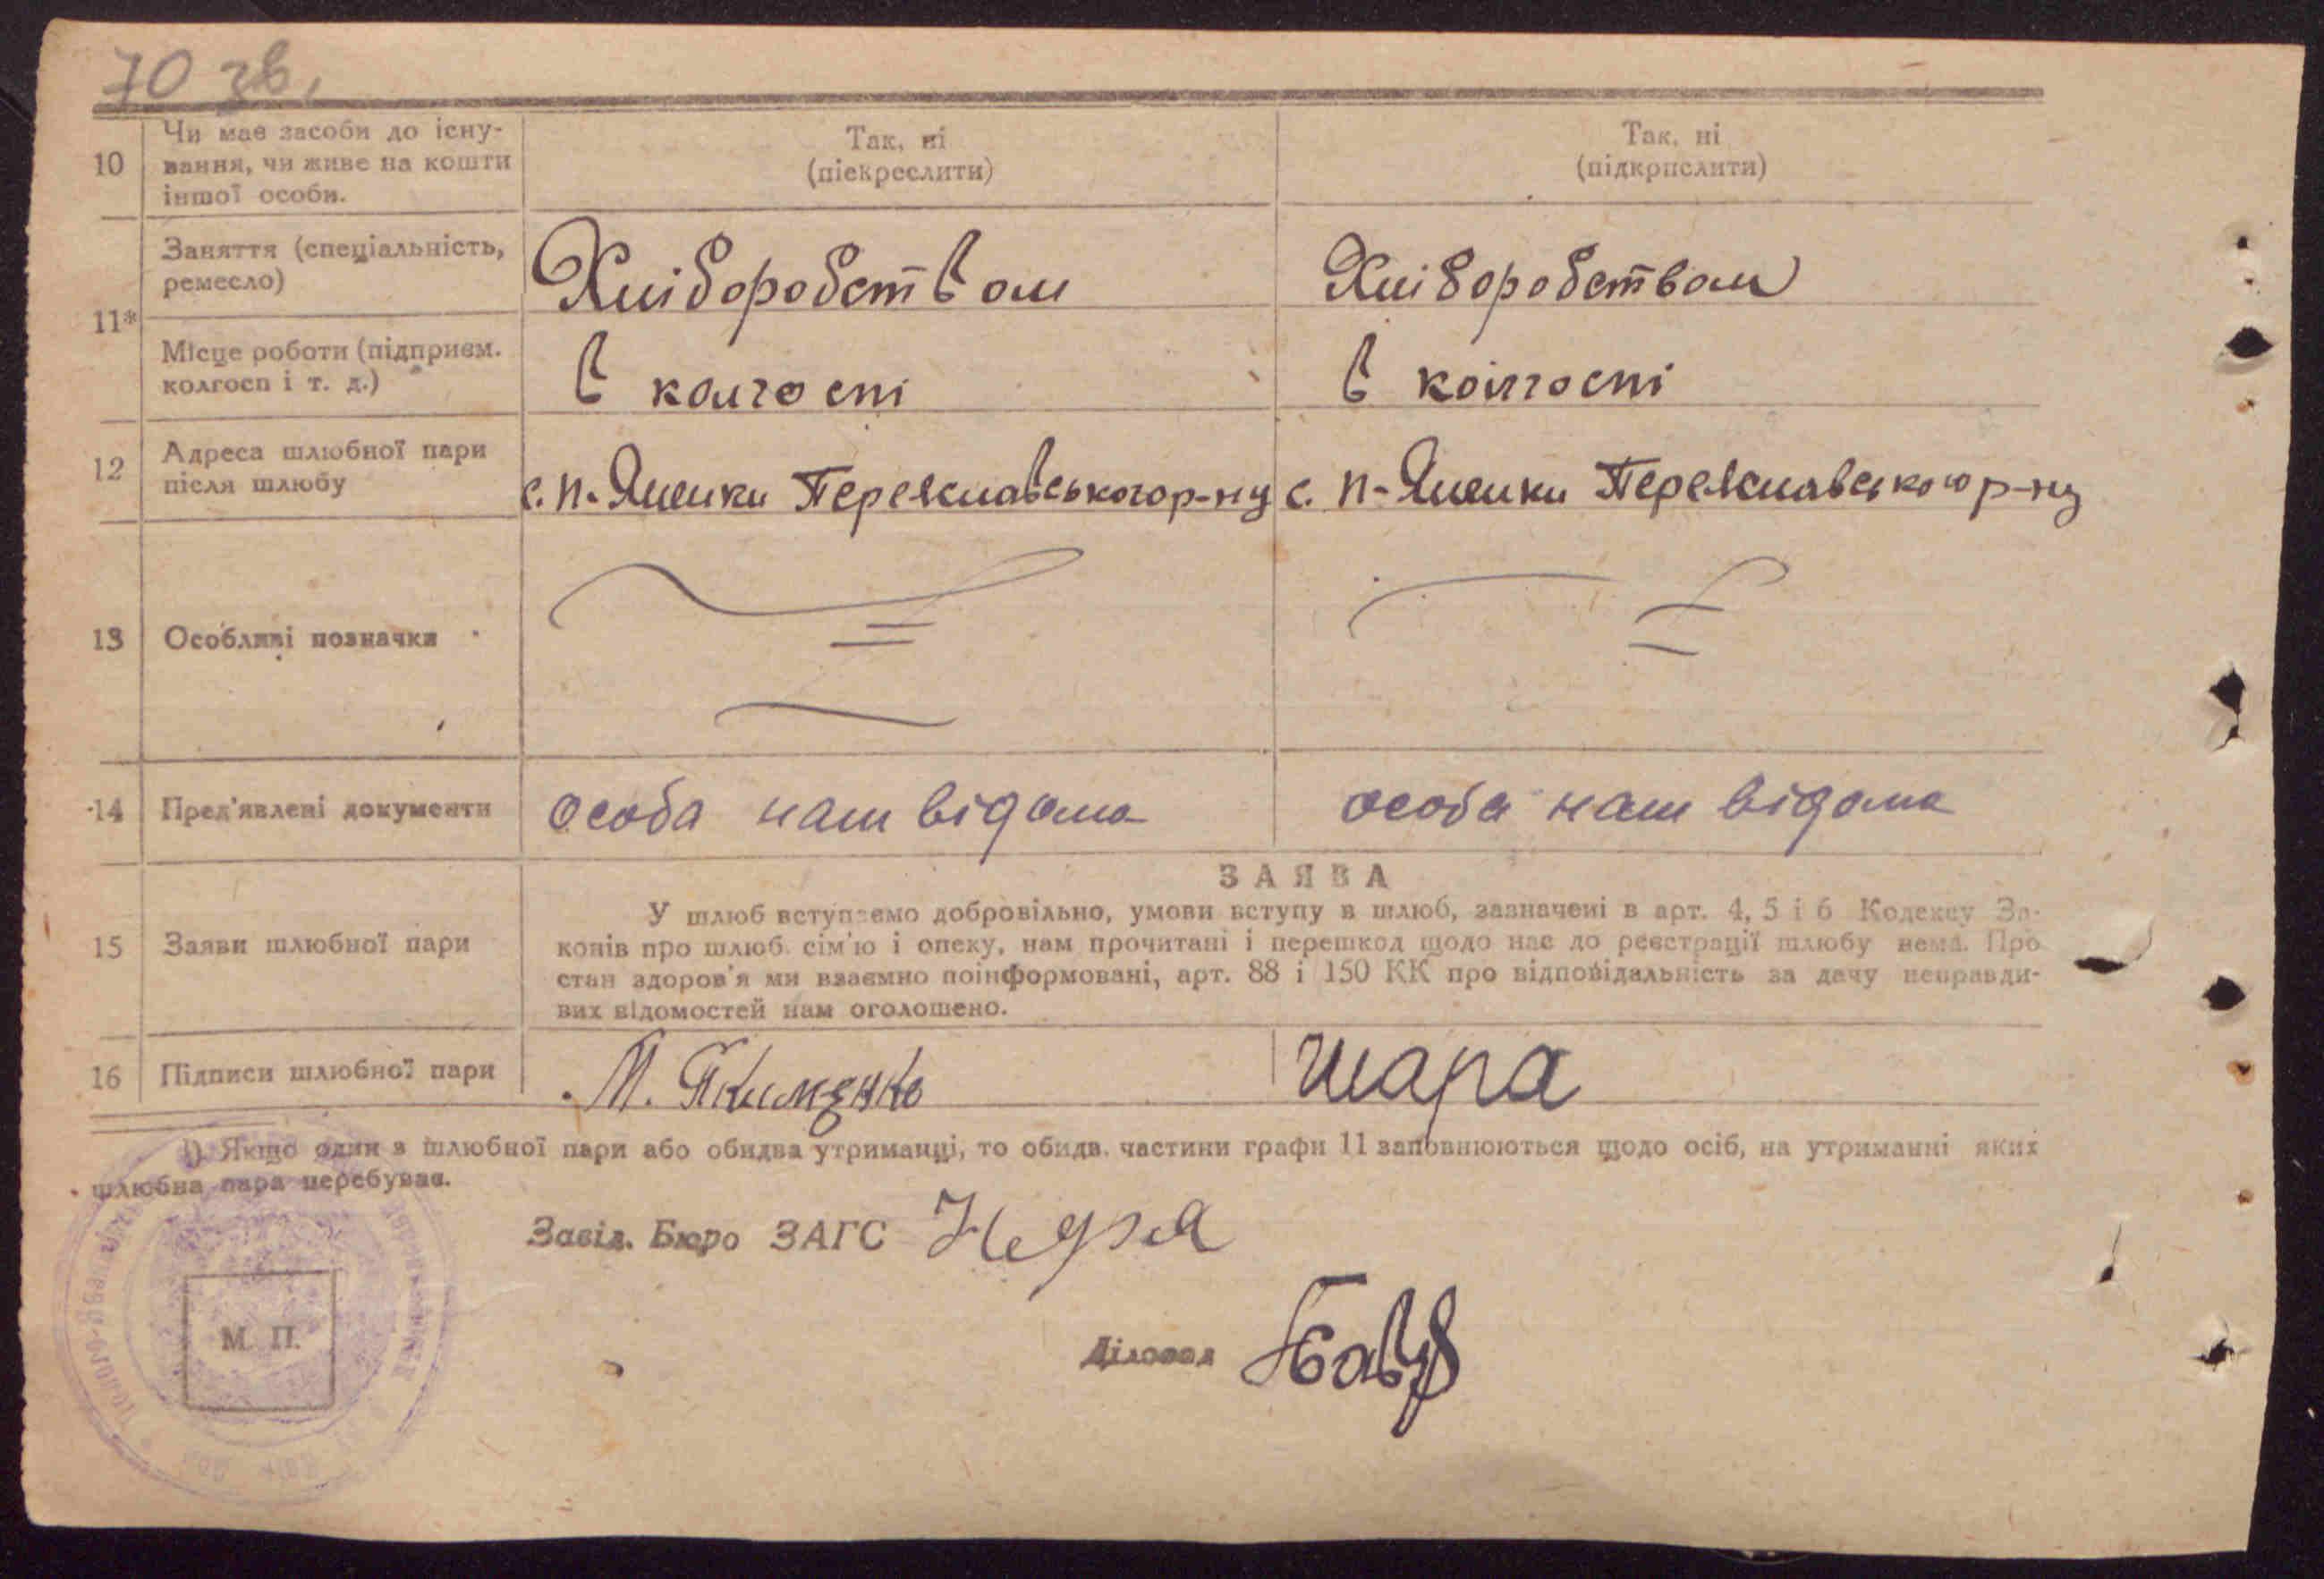 70 зв.
10 Чи має засоби до існу-
вання, чи живе на кошти
іншої особи.
Так, ні
(піекреслити)
Так, ні
(підкрислити)
11*
Заняття (спеціальність,
ремесло)
Хліборобством
Хліборобством
Місце роботи (підприєм.
колгосп і т. д.)
в колгоспі
в колгоспі
12 Адреса шлюбної пари
після шлюбу
с. П-Яшники Переяславського р-ну
с. П-Яшники Переяславського р-ну
13 Особливі позначки
14 Пред'явлені документи
особа нам відома
особа нам відома
ЗАЯВА
15 Заяви шлюбної пари
У шлюб вступаємо добровільно, умови вступу в шлюб, зазначені в арт. 4, 5 і 6 Кодексу За-
конів про шлюб. сім'ю і опеку, нам прочитані і перешкод щодо нас до реєстрації шлюбу нема. Про
стан здоров'я ми взаємно поінформовані, арт. 88 і 150 КК про відповідальність за дачу неправди-
вих відомостей нам оголошено.
16 Підписи шлюбної пари
М. Якименко
Шара
1) Якщо один з шлюбної пари або обидва утриманці, то обидв. частини графи 11 заповнюються щодо осіб, на утриманні яких
шлюбна пара перебуває.
Завід. Бюро ЗАГС
Діловод
М. П.